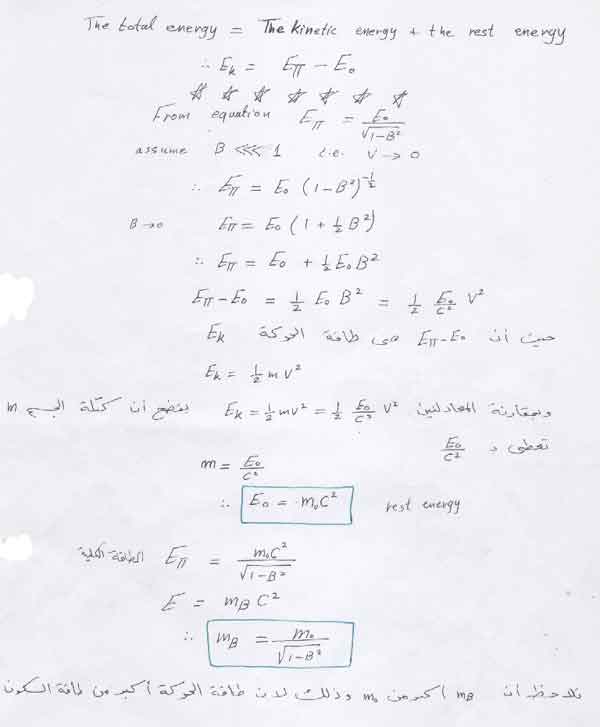 The total energy = The kinetic energy + the rest energy
∴ Eₖ = E_π − E₀
☆ ☆ ☆ ☆ ☆ ☆ ☆
From equation E_π = E₀/√(1−B²)
assume B <<< 1 i.e. V → 0
∴ E_π = E₀ (1−B²)^(−1/2)
B→0 E_π = E₀ (1 + ½ B²)
∴ E_π = E₀ + ½ E₀ B²
E_π − E₀ = ½ E₀ B² = ½ E₀/C² V²
حيث أن E_π − E₀ هى طاقة الحركة Eₖ
Eₖ = ½ m V²
وبمقارنة المعادلتين Eₖ = ½ m V² = ½ E₀/C² V² يتضح أن كتلة الجسم m
تعطى بـ E₀/C²
m = E₀/C²
∴ E₀ = m₀C² rest energy
الطاقة الكلية E_π = m₀C²/√(1−B²)
E = m_B C²
∴ m_B = m₀/√(1−B²)
نلاحظ أن m_B أكبر من m₀ وذلك لان طاقة الحركة أكبر من طاقة السكون